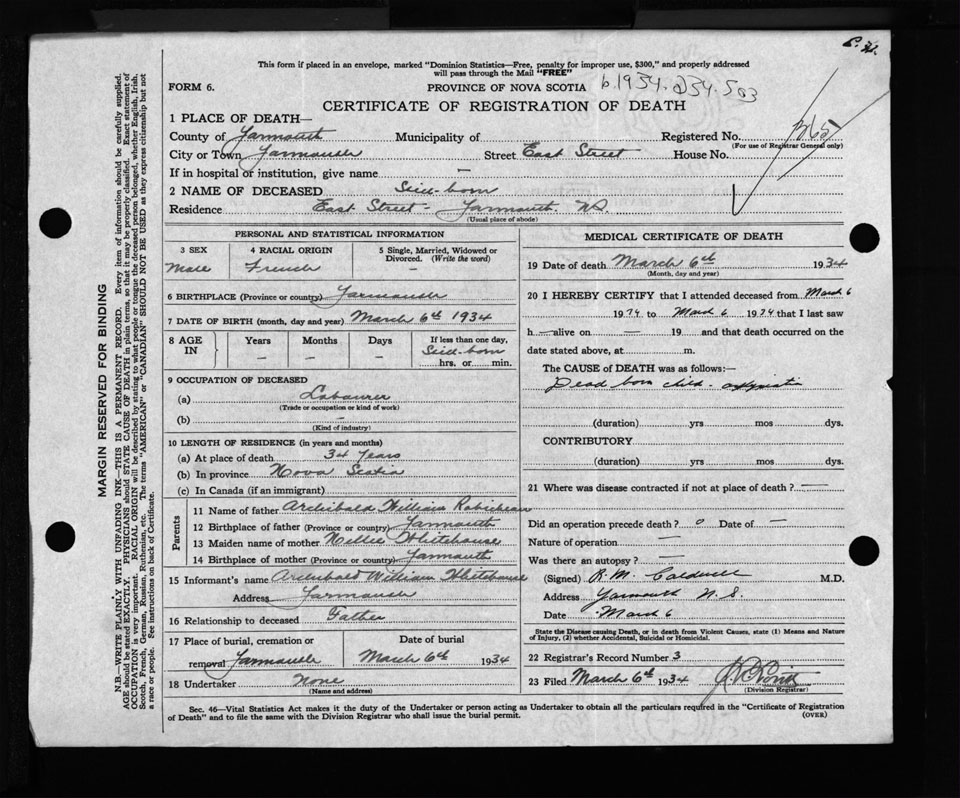 C. H.
This form if placed in an envelope, marked "Dominion Statistics—Free, penalty for improper use, $300," and properly addressed
will pass through the Mail "FREE"
FORM 6.
PROVINCE OF NOVA SCOTIA
b.1934.234.503
CERTIFICATE OF REGISTRATION OF DEATH
1 PLACE OF DEATH—
County of Yarmouth Municipality of Registered No.
(For use of Registrar General only)
City or Town Yarmouth Street East Street House No.
If in hospital or institution, give name —
2 NAME OF DECEASED Still-born
Residence East Street - Yarmouth. N.S.
(Usual place of abode)
PERSONAL AND STATISTICAL INFORMATION
3 SEX 4 RACIAL ORIGIN 5 Single, Married, Widowed or
Divorced. (Write the word)
Male French —
6 BIRTHPLACE (Province or country) Yarmouth
7 DATE OF BIRTH (month, day and year) March 6th 1934
8 AGE IN Years Months Days If less than one day,
— — — Still-born
hrs. or min.
9 OCCUPATION OF DECEASED
(a) Labourer
(Trade or occupation or kind of work)
(b) —
(Kind of industry)
10 LENGTH OF RESIDENCE (in years and months)
(a) At place of death 34 Years
(b) In province Nova Scotia
(c) In Canada (if an immigrant)
Parents
11 Name of father Archibald William Robicheau
12 Birthplace of father (Province or country) Yarmouth
13 Maiden name of mother Nellie Whitehouse
14 Birthplace of mother (Province or country) Yarmouth
15 Informant's name Archibald William Whitehouse
Address Yarmouth
16 Relationship to deceased Father
17 Place of burial, cremation or Date of burial
removal Yarmouth March 6th 1934
18 Undertaker None
(Name and address)
MEDICAL CERTIFICATE OF DEATH
19 Date of death March 6th 1934
(Month, day and year)
20 I HEREBY CERTIFY that I attended deceased from March 6
1934 to March 6 1934 that I last saw
h — alive on — 19 and that death occurred on the
date stated above, at m.
The CAUSE of DEATH was as follows:—
Dead born child.
(duration) yrs mos dys.
CONTRIBUTORY
(duration) yrs mos dys.
21 Where was disease contracted if not at place of death? —
Did an operation precede death? o Date of —
Nature of operation —
Was there an autopsy? —
(Signed) R. M. Caldwell M.D.
Address Yarmouth N.S.
Date March 6
State the Disease causing Death, or in death from Violent Causes, state (1) Means and Nature
of Injury, (2) whether Accidental, Suicidal or Homicidal.
22 Registrar's Record Number 3
23 Filed March 6th 1934
(Division Registrar)
Sec. 46—Vital Statistics Act makes it the duty of the Undertaker or person acting as Undertaker to obtain all the particulars required in the "Certificate of Registration
of Death" and to file the same with the Division Registrar who shall issue the burial permit.
(OVER)
MARGIN RESERVED FOR BINDING
N.B.—WRITE PLAINLY WITH UNFADING INK—THIS IS A PERMANENT RECORD. Every item of information should be carefully supplied.
AGE should be stated EXACTLY. PHYSICIANS should STATE CAUSE OF DEATH in plain terms, so that it may be properly classified. Exact statement of
OCCUPATION is very important. RACIAL ORIGIN will be described by stating to what people or tongue the deceased person belonged, whether English, Irish,
Scotch, French, German, Russian, Ruthenian, etc. The terms "AMERICAN" or "CANADIAN" SHOULD NOT BE USED as they express citizenship but not
a race or people. See instructions on back of Certificate.